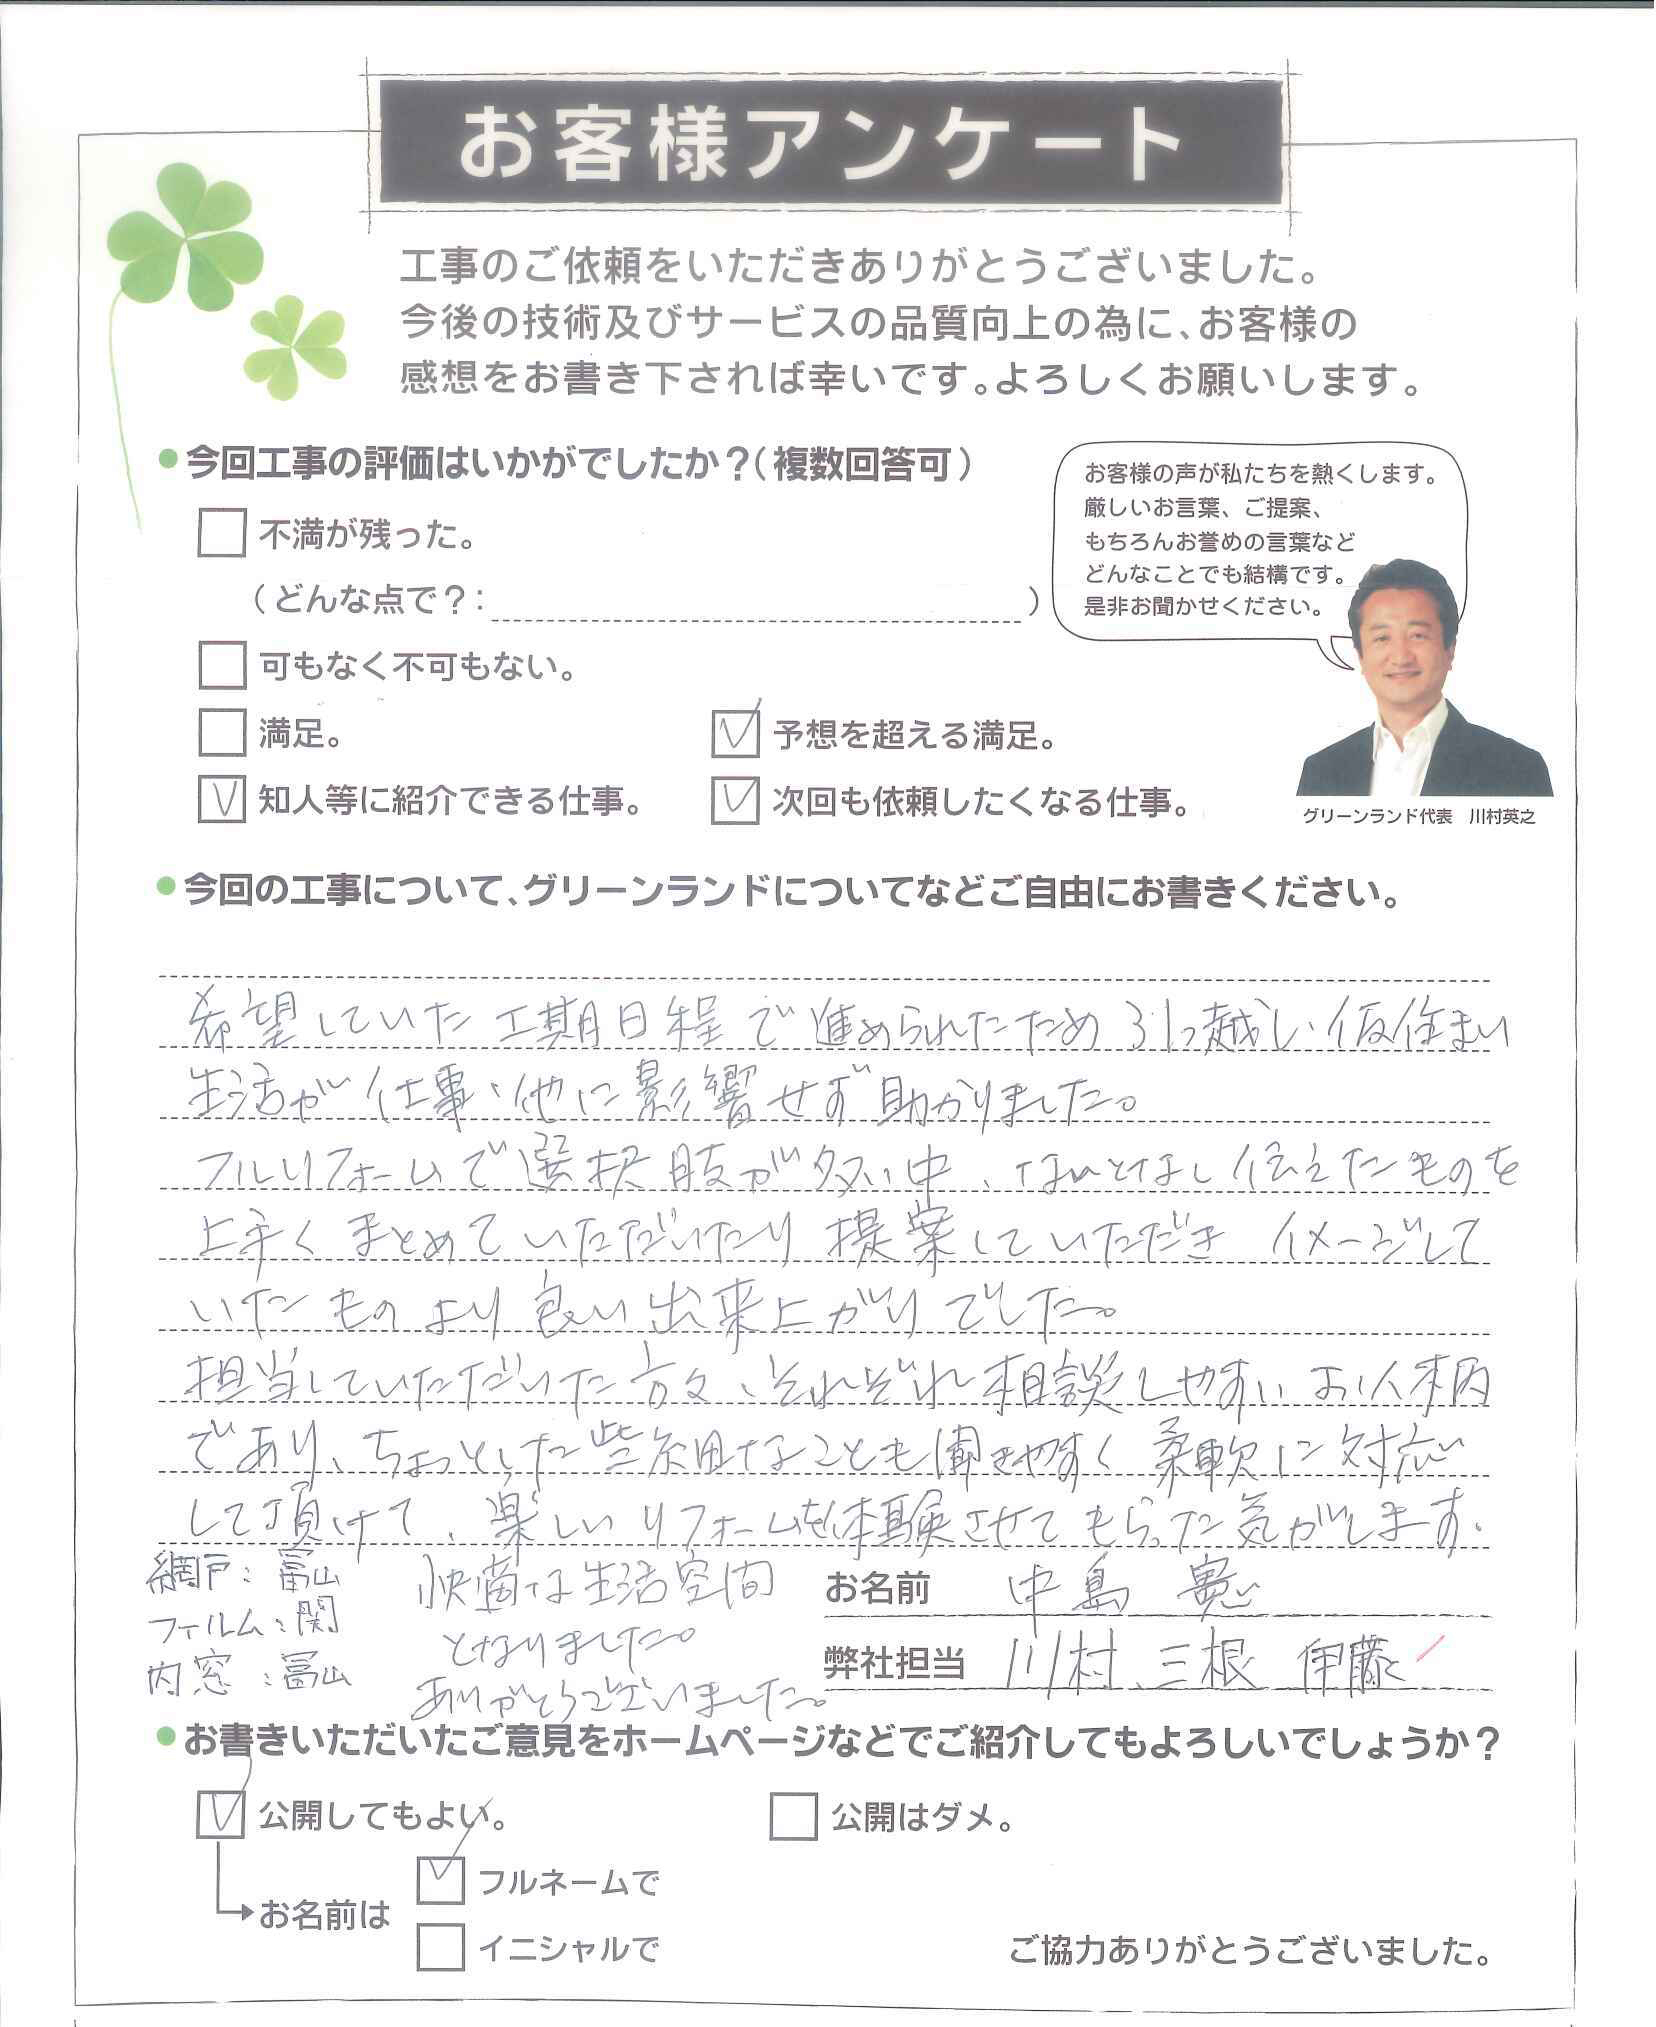 お客様アンケート
工事のご依頼をいただきありがとうございました。
今後の技術及びサービスの品質向上の為に、お客様の
感想をお書き下されば幸いです。よろしくお願いします。
●今回工事の評価はいかがでしたか？（複数回答可）
不満が残った。
（どんな点で？：　）
可もなく不可もない。
満足。
予想を超える満足。
知人等に紹介できる仕事。
次回も依頼したくなる仕事。
お客様の声が私たちを熱くします。
厳しいお言葉、ご提案、
もちろんお誉めの言葉など
どんなことでも結構です。
是非お聞かせください。
グリーンランド代表　川村英之
●今回の工事について、グリーンランドについてなどご自由にお書きください。
希望していた工期日程で進められたため引っ越し・仮住まい
生活が仕事・他に影響せず助かりました。
フルリフォームで選択肢が多い中、なんとなし伝えたものを
上手くまとめていただいたり提案していただき イメージして
いたものより良い出来上がりでした。
担当していただいた方々、それぞれ相談しやすいお人柄
であり、ちょっとした些細なことも聞きやすく柔軟に対応
して頂けて、楽しいリフォームを体験させてもらった気がします。
快適な生活空間
となりました。
ありがとうございました。
網戸：冨山
フィルム：関
内窓：冨山
お名前　中島 寛
弊社担当　川村、三根 伊藤
●お書きいただいたご意見をホームページなどでご紹介してもよろしいでしょうか？
公開してもよい。
公開はダメ。
お名前は
フルネームで
イニシャルで
ご協力ありがとうございました。